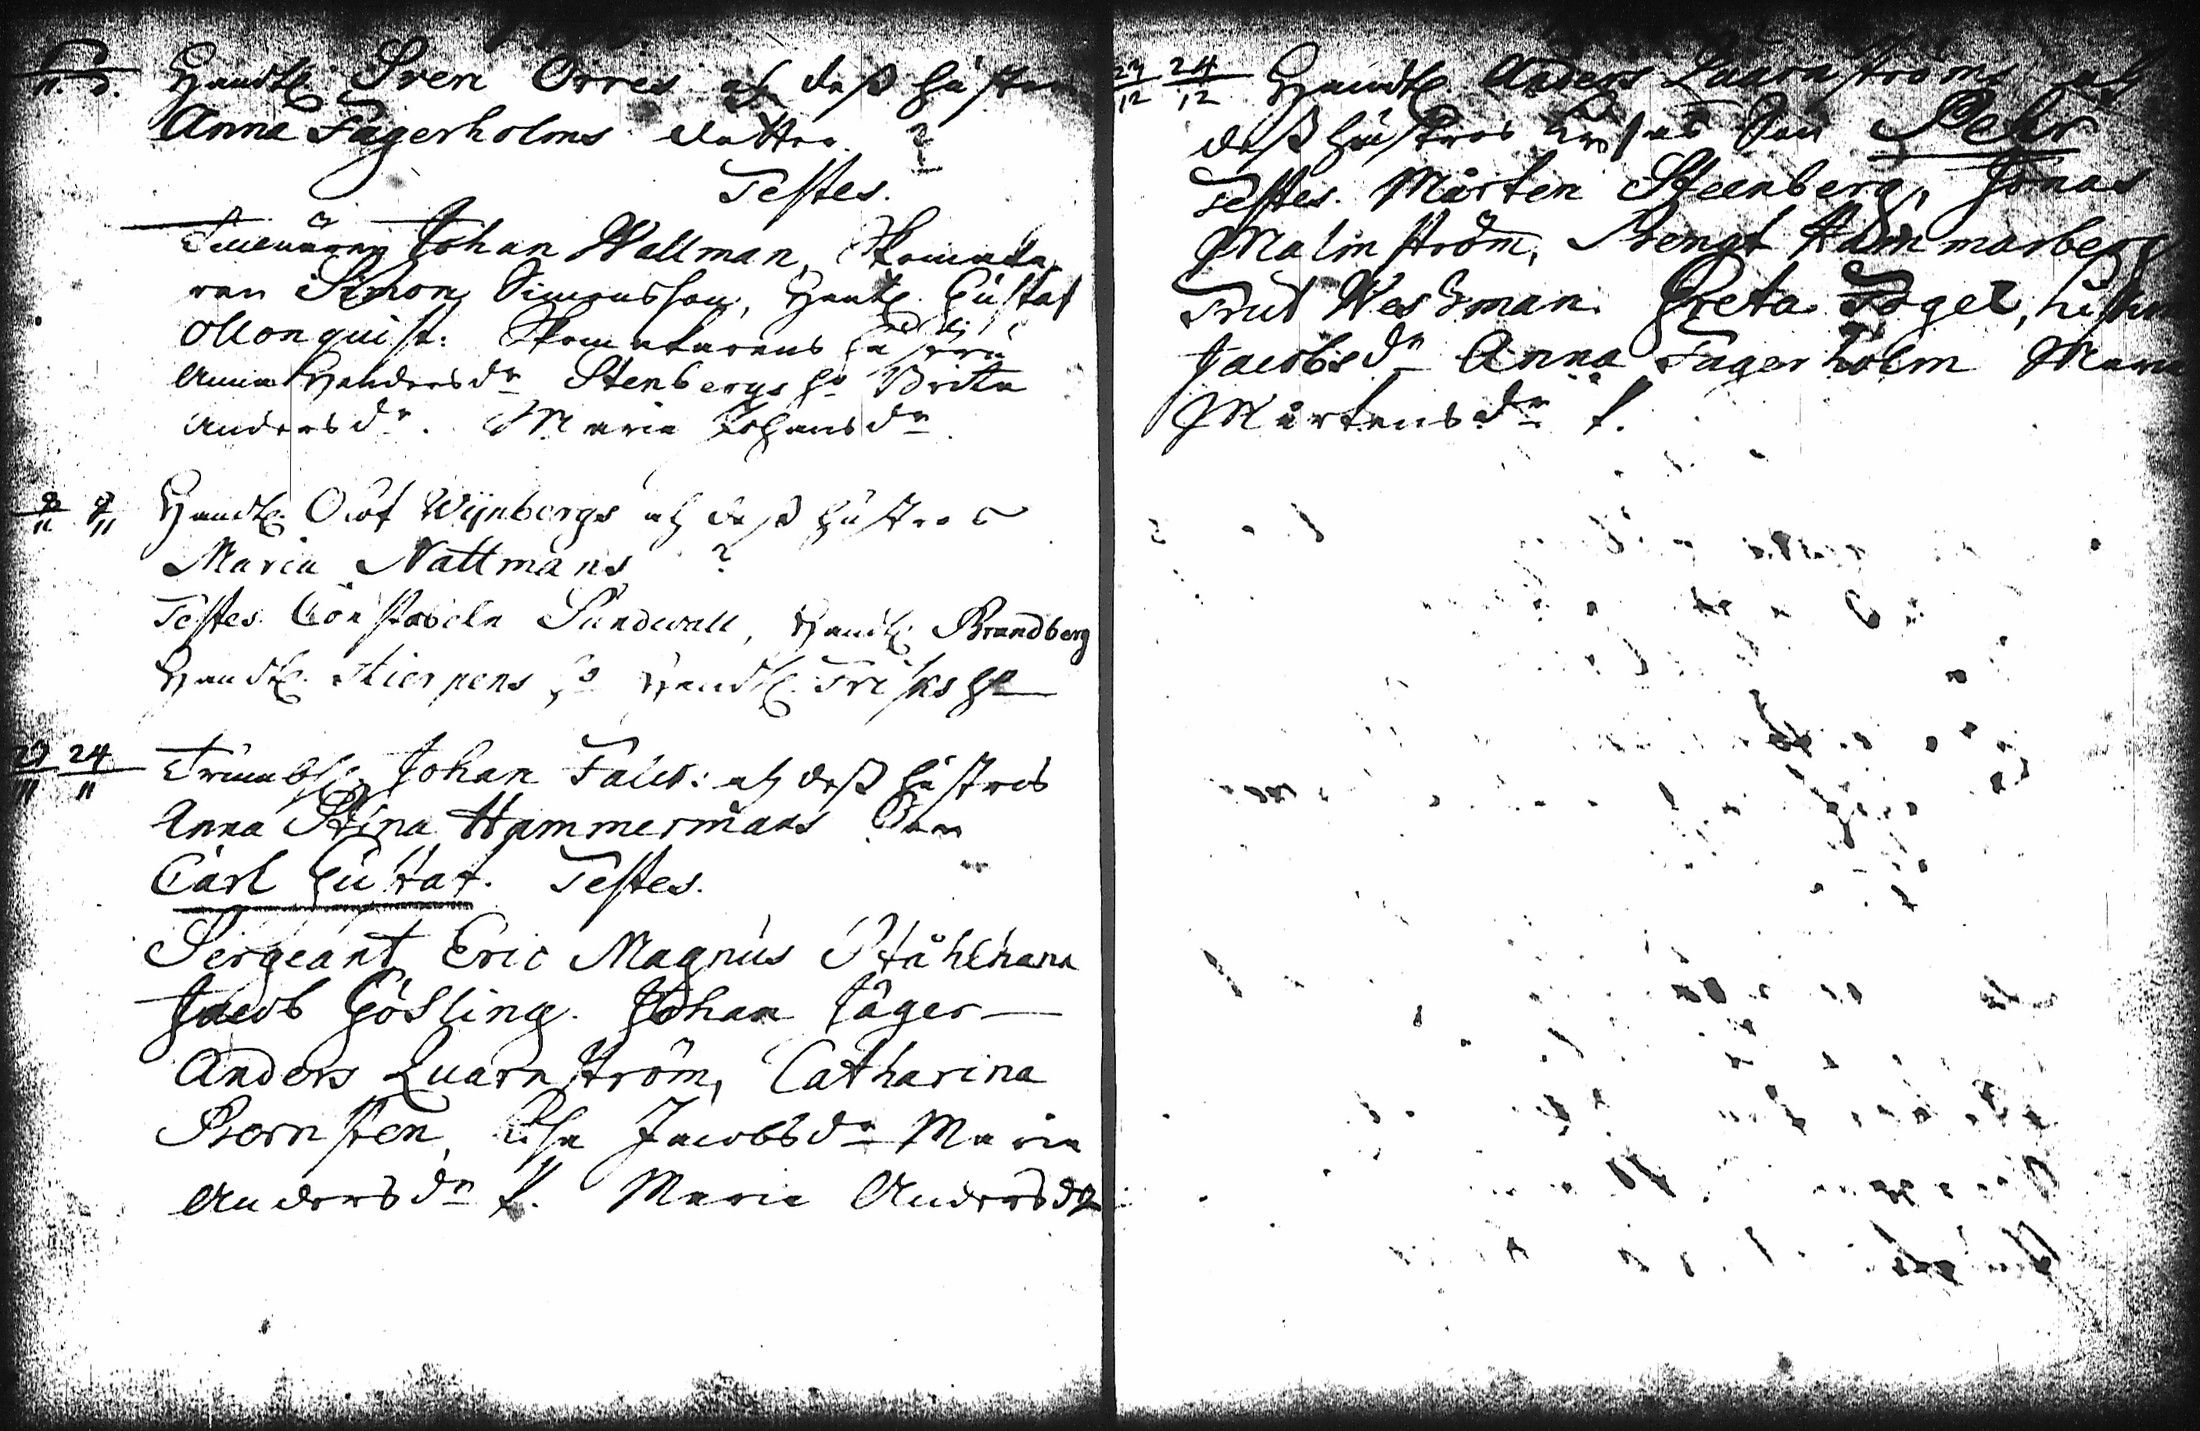 Handtl. Sven Orres och dess hustru
Anna Fagerholms dotter. ?
Testes.
Johan Wallman, Skomaka
ren Simon Simonsson, Handtl. Gustaf
Monquist. Skomakarens hustru
Anna Hendersdr Stenbergs ho Brita
Andersdr. Maria Johansdr
9/11 9/11 Handtl. Olof Wijnbergs och dess hustros
Maria Nattmans ?
Testes Constabeln Sundwall, Handtl. Brandberg
Handtl. Hierpens ho Handtl. Frisks ho
23/11 24/11 Trumbsl. Johan Falck: och dess hustros
Anna Stina Hammermans Son
Carl Gustaf. Testes.
Sergeant Eric Magnus Stålhane
Jacob Gösling. Johan Jäger
Anders Quarnström, Catharina
Bernsten, Lisa Jacobsdr Maria
Andersdr f. Maria Andersdr
23/12 24/12 Handtl. Anders Quarnströms och
dess hustros Son Pehr
Testes. Mårten Steenberg, Jonas
Malmström, Bengt Hammarberg
Westman. Greta Fogel,
Jacobsdr Anna Fagerholm Maria
Mårtensdr f.